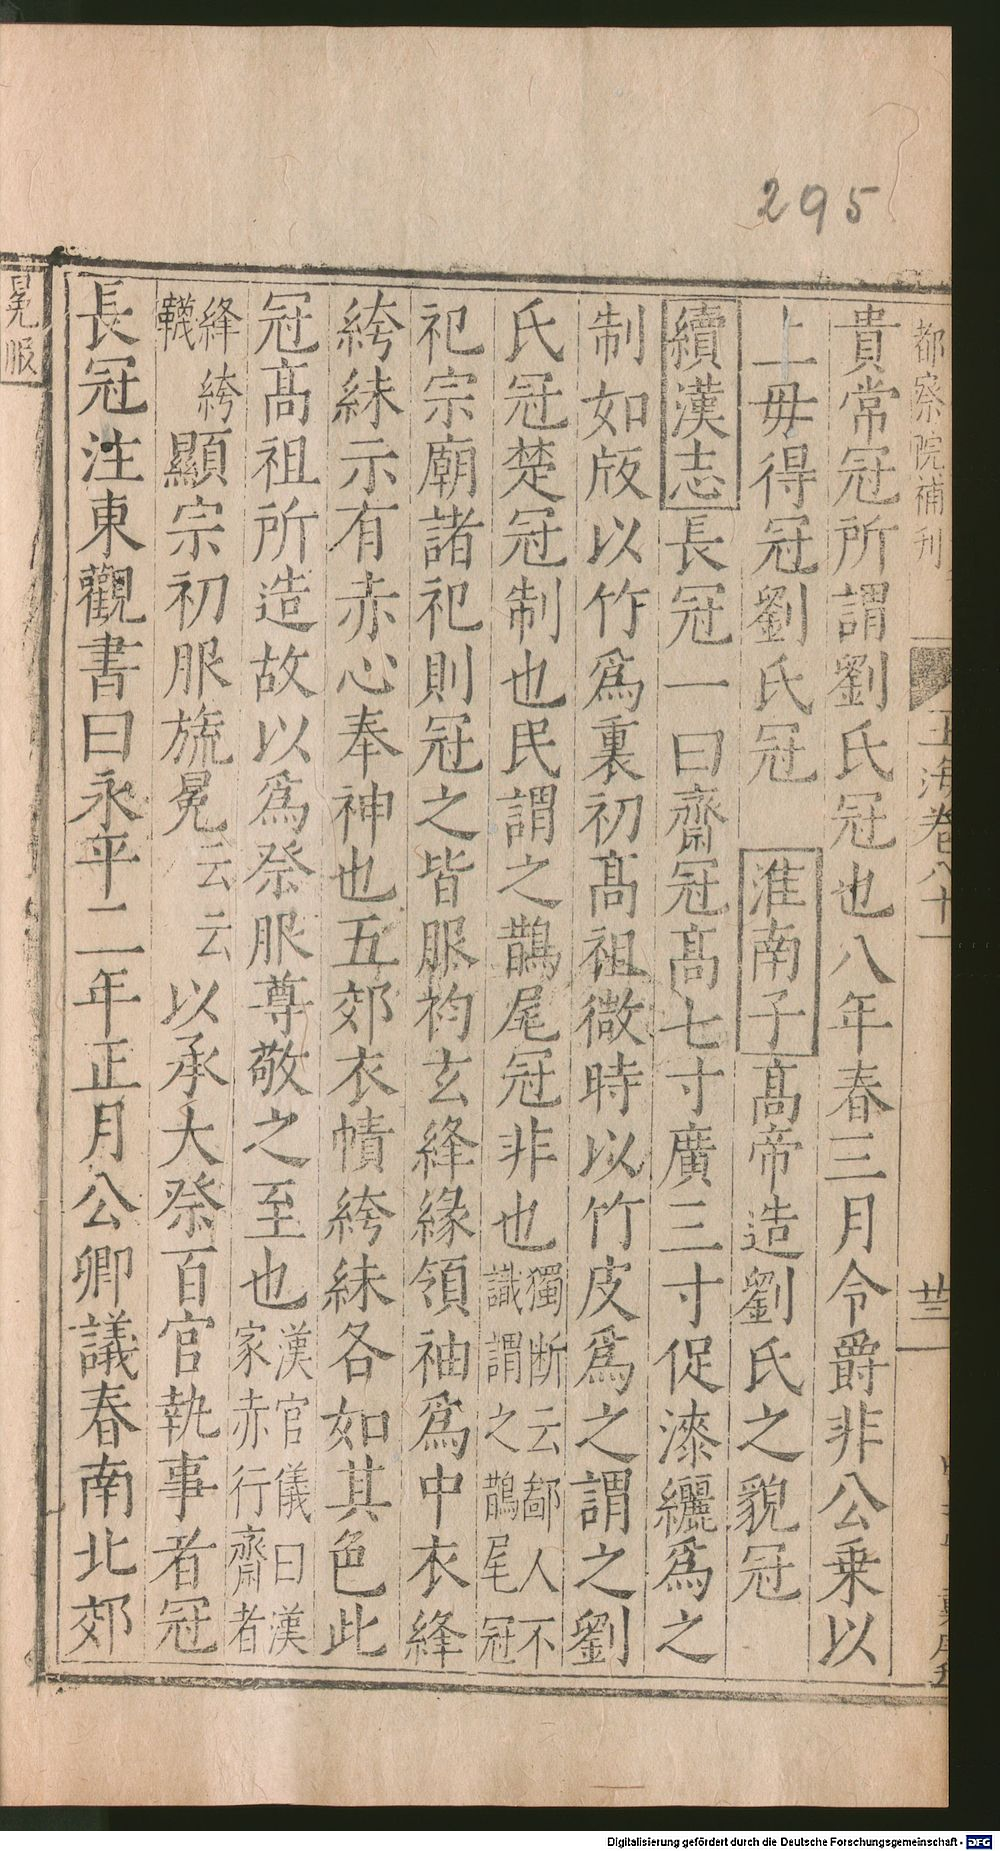 295
都察院補刊
玉海卷八十一
廿三
貴常冠所謂劉氏冠也八年春三月令爵非公乗以
上毋得冠劉氏冠　淮南子髙帝造劉氏之貌冠
續漢志長冠一曰齋冠髙七寸廣三寸促漆纚爲之
制如版以竹爲裏初髙祖微時以竹皮爲之謂之劉
氏冠楚冠制也民謂之鵲尾冠非也獨断云鄙人不
識謂之鵲尾冠
祀宗廟諸祀則冠之皆服袀玄絳緣領袖爲中衣絳
絝絉示有赤心奉神也五郊衣幘絝絉各如其色此
冠髙祖所造故以爲祭服尊敬之至也漢官儀曰漢
家赤行齋者
絳絝
韈顯宗初服旒冕云云以承大祭百官執事者冠
長冠注東觀書曰永平二年正月公卿議春南北郊
冕服
Digitalisierung gefördert durch die Deutsche Forschungsgemeinschaft - DFG